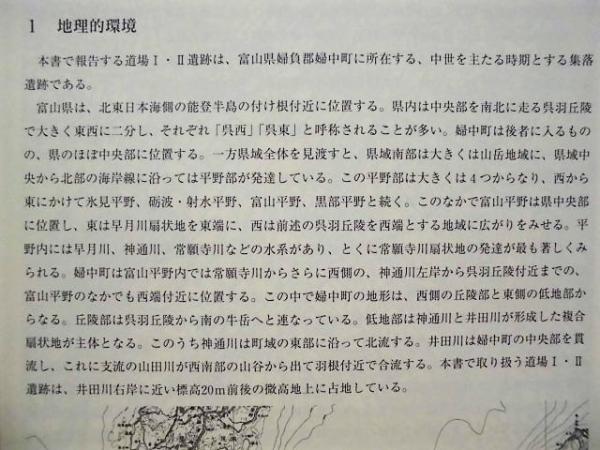 1 地理的環境
本書で報告する道場Ⅰ・Ⅱ遺跡は、富山県婦負郡婦中町に所在する、中世を主たる時期とする集落
遺跡である。
富山県は、北東日本海側の能登半島の付け根付近に位置する。県内は中央部を南北に走る呉羽丘陵
で大きく東西に二分し、それぞれ「呉西」「呉東」と呼称されることが多い。婦中町は後者に入るもの
の、県のほぼ中央部に位置する。一方県域全体を見渡すと、県域南部は大きくは山岳地域に、県域中
央から北部の海岸線に沿っては平野部が発達している。この平野部は大きくは４つからなり、西から
東にかけて氷見平野、砺波・射水平野、富山平野、黒部平野と続く。このなかで富山平野は県中央部
に位置し、東は早月川扇状地を東端に、西は前述の呉羽丘陵を西端とする地域に広がりをみせる。平
野内には早月川、神通川、常願寺川などの水系があり、とくに常願寺川扇状地の発達が最も著しくみ
られる。婦中町は富山平野内では常願寺川からさらに西側の、神通川左岸から呉羽丘陵付近までの、
富山平野のなかでも西端付近に位置する。この中で婦中町の地形は、西側の丘陵部と東側の低地部か
らなる。丘陵部は呉羽丘陵から南の牛岳へと連なっている。低地部は神通川と井田川が形成した複合
扇状地が主体となる。このうち神通川は町域の東部に沿って北流する。井田川は婦中町の中央部を貫
流し、これに支流の山田川が西南部の山谷から出て羽根付近で合流する。本書で取り扱う道場Ⅰ・Ⅱ
遺跡は、井田川右岸に近い標高20m前後の微高地上に占地している。